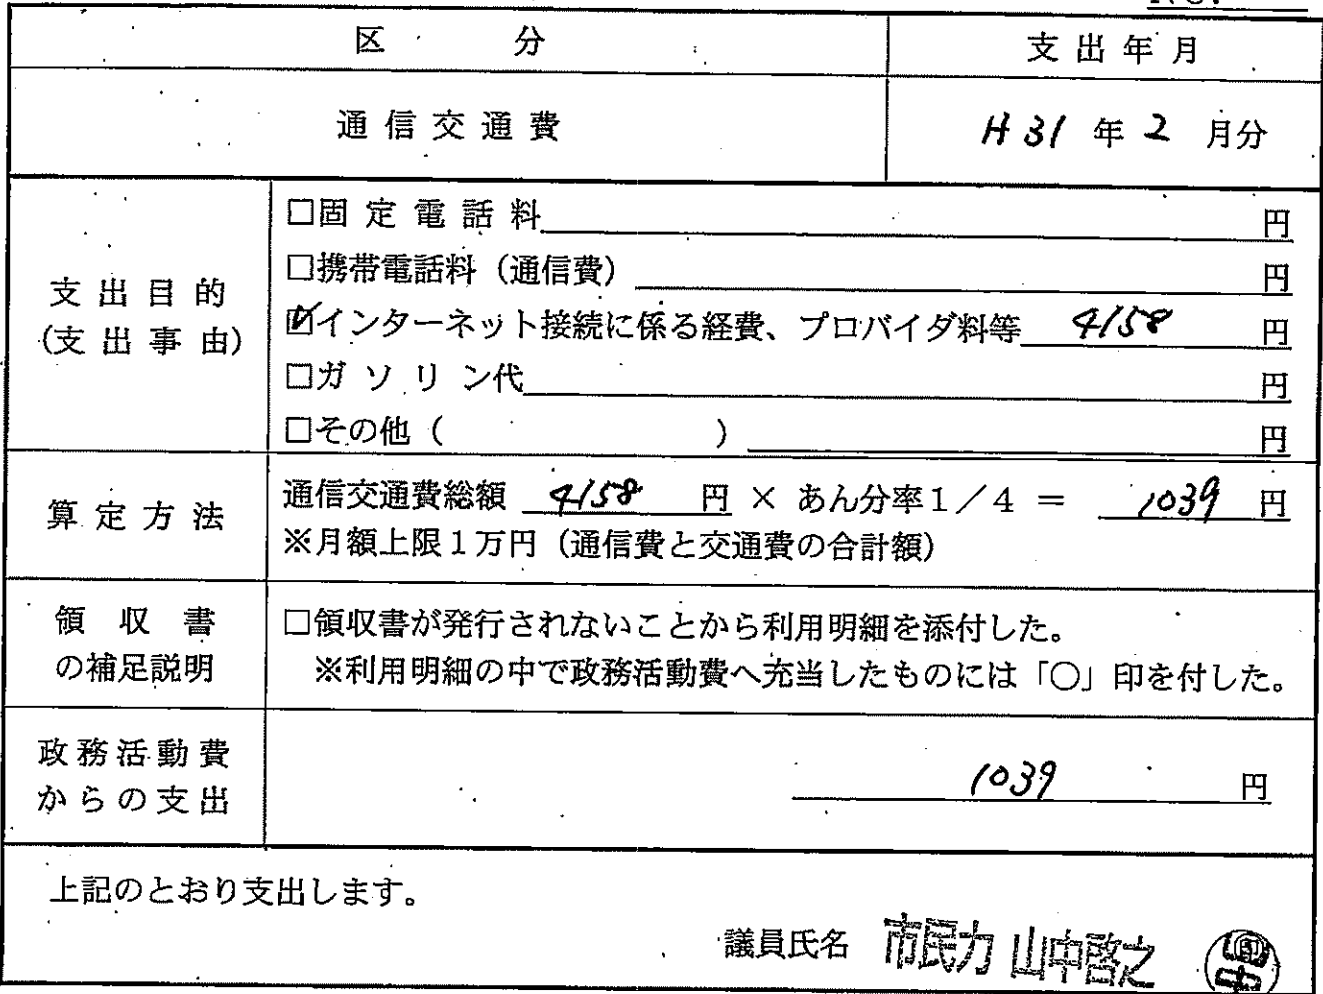 区 分
支出年月
通信交通費
H31 年 2 月分
支出目的
(支出事由)
□固定電話料 円
□携帯電話料（通信費） 円
☑インターネット接続に係る経費、プロバイダ料等 4158 円
□ガソリン代 円
□その他（ ） 円
算定方法
通信交通費総額 4158 円 × あん分率1／4 ＝ 1039 円
※月額上限1万円（通信費と交通費の合計額）
領収書
の補足説明
□領収書が発行されないことから利用明細を添付した。
※利用明細の中で政務活動費へ充当したものには「○」印を付した。
政務活動費
からの支出
1039 円
上記のとおり支出します。
議員氏名 市民力 山中啓之